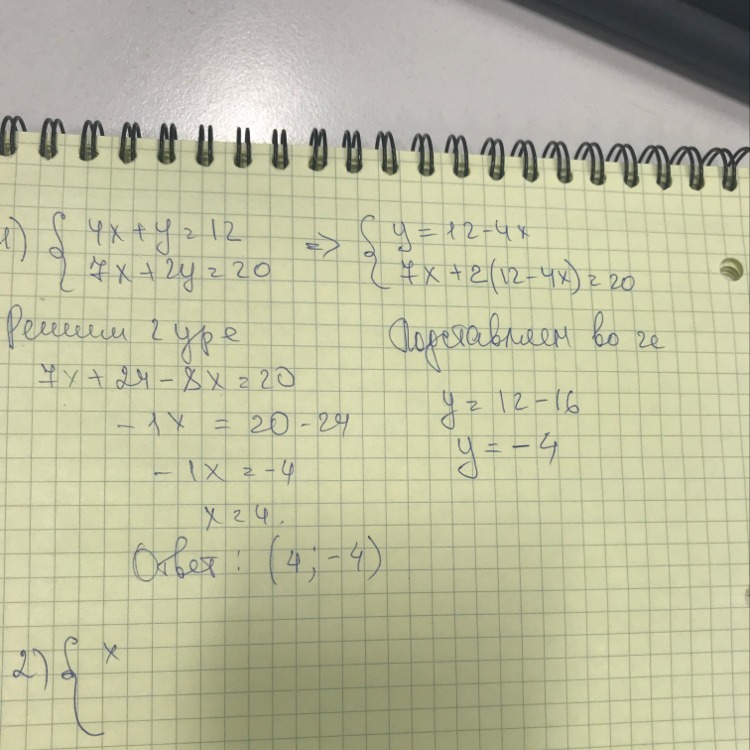 1) { 4x+y=12 => { y=12-4x
7x+2y=20 7x+2(12-4x)=20
Решим 2 уре
7x+24-8x=20
-1x = 20-24
-1x=-4
x=4.
Подставляем во 2е
y=12-16
y=-4
Ответ: (4;-4)
2) { x